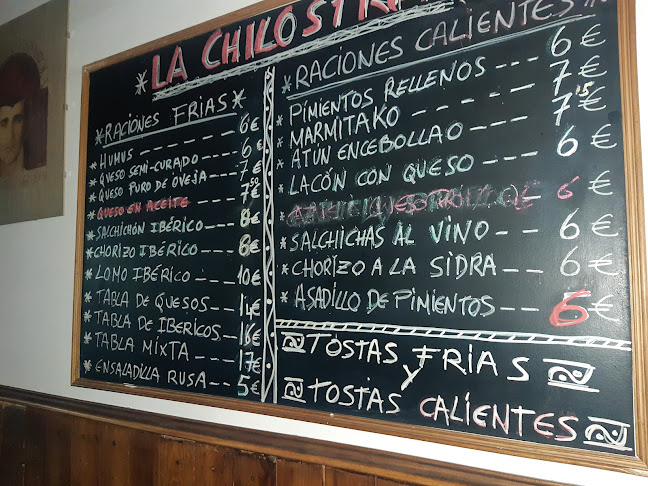 *LA CHILOSTR
*RACIONES FRIAS*
* HUMUS ---- 6€
* QUESO SEMI-CURADO --- 6€
* QUESO PURO DE OVEJA --- 7€
* QUESO EN ACEITE --- 7'50€
* SALCHICHÓN IBÉRICO -- 8€
* CHORIZO IBÉRICO -- 8€
* LOMO IBÉRICO --- 10€
* TABLA DE QUESOS -- 14€
* TABLA DE IBERICOS - 16€
* TABLA MIXTA ---- 17€
* ENSALADILLA RUSA -- 5€
*RACIONES CALIENTES
* PIMIENTOS RELLENOS --- 6€
* MARMITAKO ---- 7€
* ATÚN ENCEBOLLAO --- 7'15€
* LACÓN CON QUESO --- 6€
* 6€
* SALCHICHAS AL VINO -- 6€
* CHORIZO A LA SIDRA -- 6€
* ASADILLO DE PIMIENTOS -- 6€
TOSTAS FRIAS
Y
TOSTAS CALIENTES